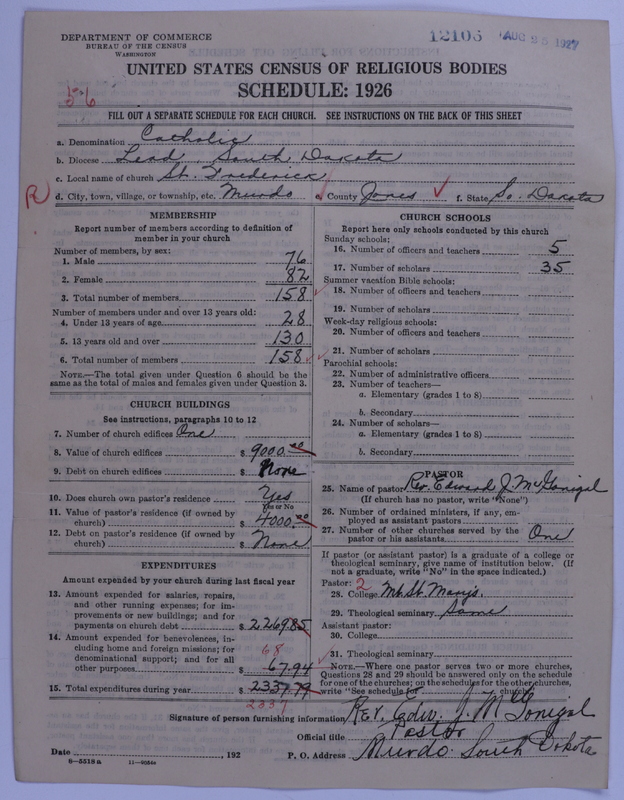 DEPARTMENT OF COMMERCE
BUREAU OF THE CENSUS
WASHINGTON
12106 AUG 25 1927
UNITED STATES CENSUS OF RELIGIOUS BODIES
SCHEDULE: 1926
56
FILL OUT A SEPARATE SCHEDULE FOR EACH CHURCH. SEE INSTRUCTIONS ON THE BACK OF THIS SHEET
a. Denomination Catholic
b. Diocese Lead, South Dakota
c. Local name of church St. Frederick
R d. City, town, village, or township, etc. Murdo e. County Jones f. State So. Dakota
MEMBERSHIP
Report number of members according to definition of
member in your church
Number of members, by sex:
1. Male 76
2. Female 82
3. Total number of members 158
Number of members under and over 13 years old:
4. Under 13 years of age 28
5. 13 years old and over 130
6. Total number of members 158
NOTE.—The total given under Question 6 should be the
same as the total of males and females given under Question 3.
CHURCH BUILDINGS
See instructions, paragraphs 10 to 12
7. Number of church edifices One
8. Value of church edifices $ 9000.00
9. Debt on church edifices $ None
10. Does church own pastor's residence Yes
Yes or No
11. Value of pastor's residence (if owned by
church) $ 4000.00
12. Debt on pastor's residence (if owned by
church) $ None
EXPENDITURES
Amount expended by your church during last fiscal year
13. Amount expended for salaries, repairs,
and other running expenses; for im-
provements or new buildings; and for
payments on church debt $ 2269.85
14. Amount expended for benevolences, in-
cluding home and foreign missions; for
denominational support; and for all
68
other purposes $ 67.94
15. Total expenditures during year $ 2337.79
2337
CHURCH SCHOOLS
Report here only schools conducted by this church
Sunday schools:
16. Number of officers and teachers 5
17. Number of scholars 35
Summer vacation Bible schools:
18. Number of officers and teachers
19. Number of scholars
Week-day religious schools:
20. Number of officers and teachers
21. Number of scholars
Parochial schools:
22. Number of administrative officers
23. Number of teachers—
a. Elementary (grades 1 to 8)
b. Secondary
24. Number of scholars—
a. Elementary (grades 1 to 8)
b. Secondary
PASTOR
25. Name of pastor Rev. Edward J. McGonigal
(If church has no pastor, write "None")
26. Number of ordained ministers, if any, em-
ployed as assistant pastors
27. Number of other churches served by the
pastor or his assistants One
If pastor (or assistant pastor) is a graduate of a college or
theological seminary, give name of institution below. (If
not a graduate, write "No" in the space indicated.)
Pastor: 2
28. College Mt. St. Mary's.
29. Theological seminary Same
Assistant pastor:
30. College
31. Theological seminary
NOTE.—Where one pastor serves two or more churches,
Questions 28 and 29 should be answered only on the schedule
for one of the churches; on the schedules for the other churches,
write "See schedule for church."
Signature of person furnishing information Rev. Edw. J. McGonigal
Official title Pastor
Date , 192 P. O. Address Murdo. South Dakota
8-5518a